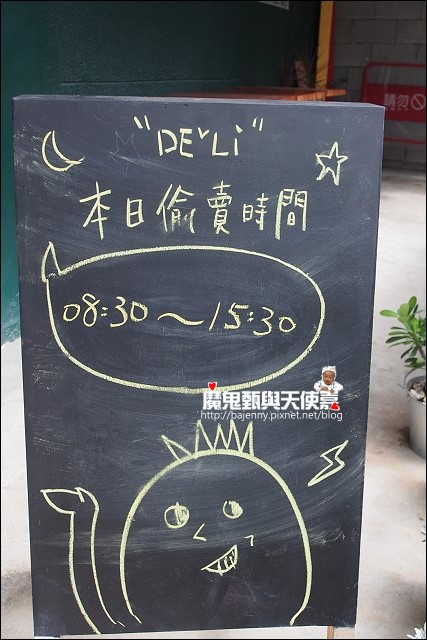 "DEVLi"
本日偷賣時間
08:30～15:30
魔鬼甄與天使嘉
http://bajenny.pixnet.net/blog
請勿